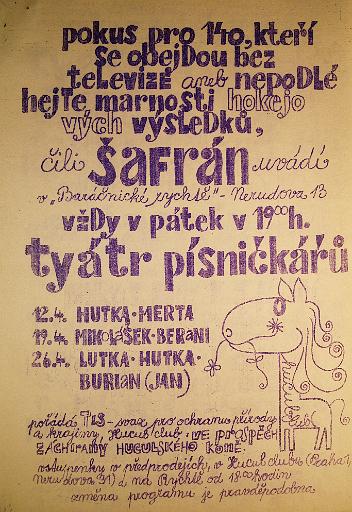 pokus pro 140, kteří
se obejDou bez
televize aneb nepoDlé
hejTe marnosti hokejo
vých výsleDků,
čili ŠafRán uvádí
v „Baráčnické rychtě" - Nerudova 13
vžDy v pátek v 19⁰⁰h.
tyátr písničkářů
12.4. HUTKA · MERTA
19.4. MIKOLÁŠEK · BERANI
26.4. LUTKA · HUTKA ·
BURIAN (JAN)
huculové
pořádá TIS - svaz pro ochranu přírody
a krajiny, Hucul club VE PROSPĚCH
ZÁCHRANY HUCULSKÉHO KONĚ.
vstupenky v předprodejích, v Hucul clubu (Praha 1,
Nerudova 31) a na Rychtě od 18⁰⁰ hodin
změna programu je pravděpodobná